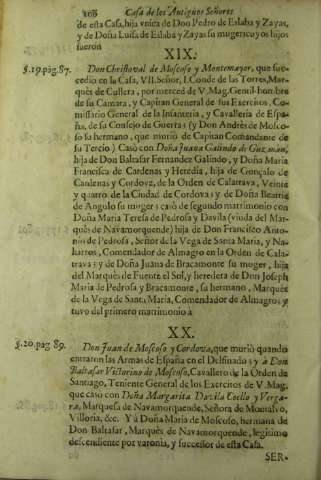 208 Casa de los Antiguos Señores
de esta Casa, hija vnica de Don Pedro de Eslaba y Zayas,
y de Doña Luisa de Eslaba y Zayas su muger; cuyos hijos
fueron
XIX.
§.19.pag.87. Don Christoval de Moscoso y Montemayor, que suc-
cedio en la Casa, VII. Señor, I. Conde de las Torres, Mar-
quès de Cullera, por merced de V. Mag. Gentil-hombre
de su Camara, y Capitan General de sus Exercitos, Co-
missario General de la Infanteria, y Cavalleria de Espa-
ña, de su Consejo de Guerra: (y Don Andrès de Mosco-
so su hermano, que muriò de Capitan Comandante de
su Tercio) Casò con Doña Juana Galindo de Guzmàn,
hija de Don Baltasar Fernandez Galindo, y Doña Maria
Francisca de Cardenas y Heredia, hija de Gonçalo de
Cardenas y Cordova, de la Orden de Calatrava, Veinte
y quatro de la Ciudad de Cordova: y de Doña Beatriz
de Angulo su muger: casò de segundo matrimonio con
Doña Maria Teresa de Pedrosa y Davila (viuda del Mar-
quès de Navamorquende) hija de Don Francisco Anto-
nio de Pedrosa, Señor de la Vega de Santa Maria, y Na-
harros, Comendador de Almagro en la Orden de Cala-
trava: y de Doña Juana de Bracamonte su muger, hija
del Marquès de Fuente el Sol, y heredera de Don Joseph
Maria de Pedrosa y Bracamonte, su hermano, Marquès
de la Vega de Santa Maria, Comendador de Almagro: y
tuvo del primero matrimonio à
XX.
§.20.pag 89. Don Juan de Moscoso y Cordova, que muriò quando
entraron las Armas de España en el Delfinado: y à Don
Baltasar Victorino de Moscoso, Cavallero de la Orden de
Santiago, Teniente General de los Exercitos de V. Mag.
que casò con Doña Margarita Davila Coello y Verga-
ra, Marquesa de Navamorquende, Señora de Montalvo,
Villoria, &c. Y à Doña Maria de Moscoso, hermana de
Don Baltasar, Marquès de Navamorquende, legitimo
descendiente por varonia, y successor de esta Casa.
SER-